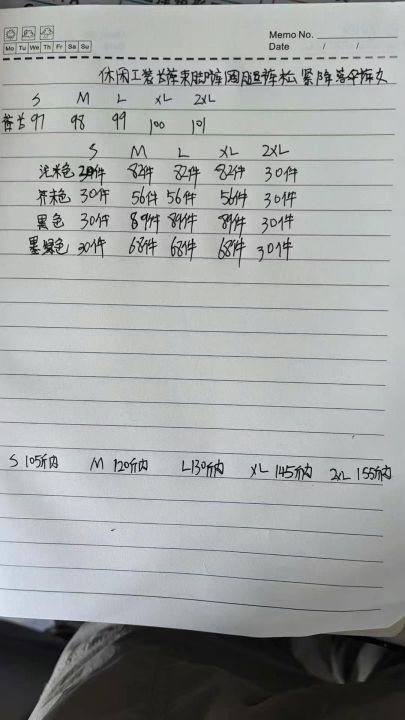 Memo No.
Mo Tu We Th Fr Sa Su
Date / /
休闲工装长裤束脚裤阔腿裤松紧降落伞裤女
S M L XL 2XL
裤长 97 98 99 100 101
S M L XL 2XL
浅米色 件 82件 82件 82件 30件
芥末色 30件 56件 56件 56件 30件
黑色 30件 89件 89件 89件 30件
墨绿色 30件 68件 68件 68件 30件
S 105斤内 M 120斤内 L 130斤内 XL 145斤内 2XL 155斤内